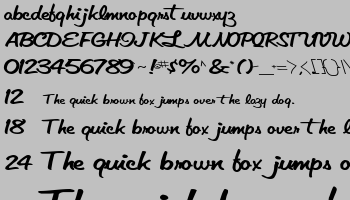 abcdefghijklmnopqrst uvwxyz
ABCDEFGHIJKL MNOPQRSTUVW
0123456789~!@#$%^&*()-_+=>,<[]{}\
12 The quick brown fox jumps over the lazy dog.
18 The quick brown fox jumps over the lazy
24 The quick brown fox jumps o